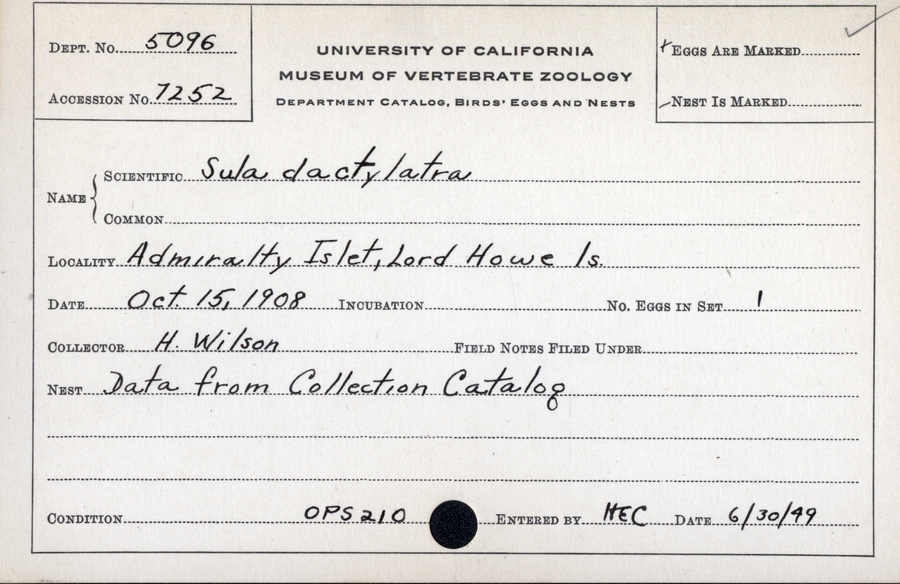 DEPT. NO. 5096
ACCESSION NO. 7252
UNIVERSITY OF CALIFORNIA
MUSEUM OF VERTEBRATE ZOOLOGY
DEPARTMENT CATALOG, BIRDS' EGGS AND NESTS
+ EGGS ARE MARKED
– NEST IS MARKED
NAME
SCIENTIFIC Sula dactylatra
COMMON
LOCALITY Admiralty Islet, Lord Howe Is.
DATE Oct. 15, 1908 INCUBATION NO. EGGS IN SET 1
COLLECTOR H. Wilson FIELD NOTES FILED UNDER
NEST Data from Collection Catalog
CONDITION OPS 210 ENTERED BY HEC DATE 6/30/49